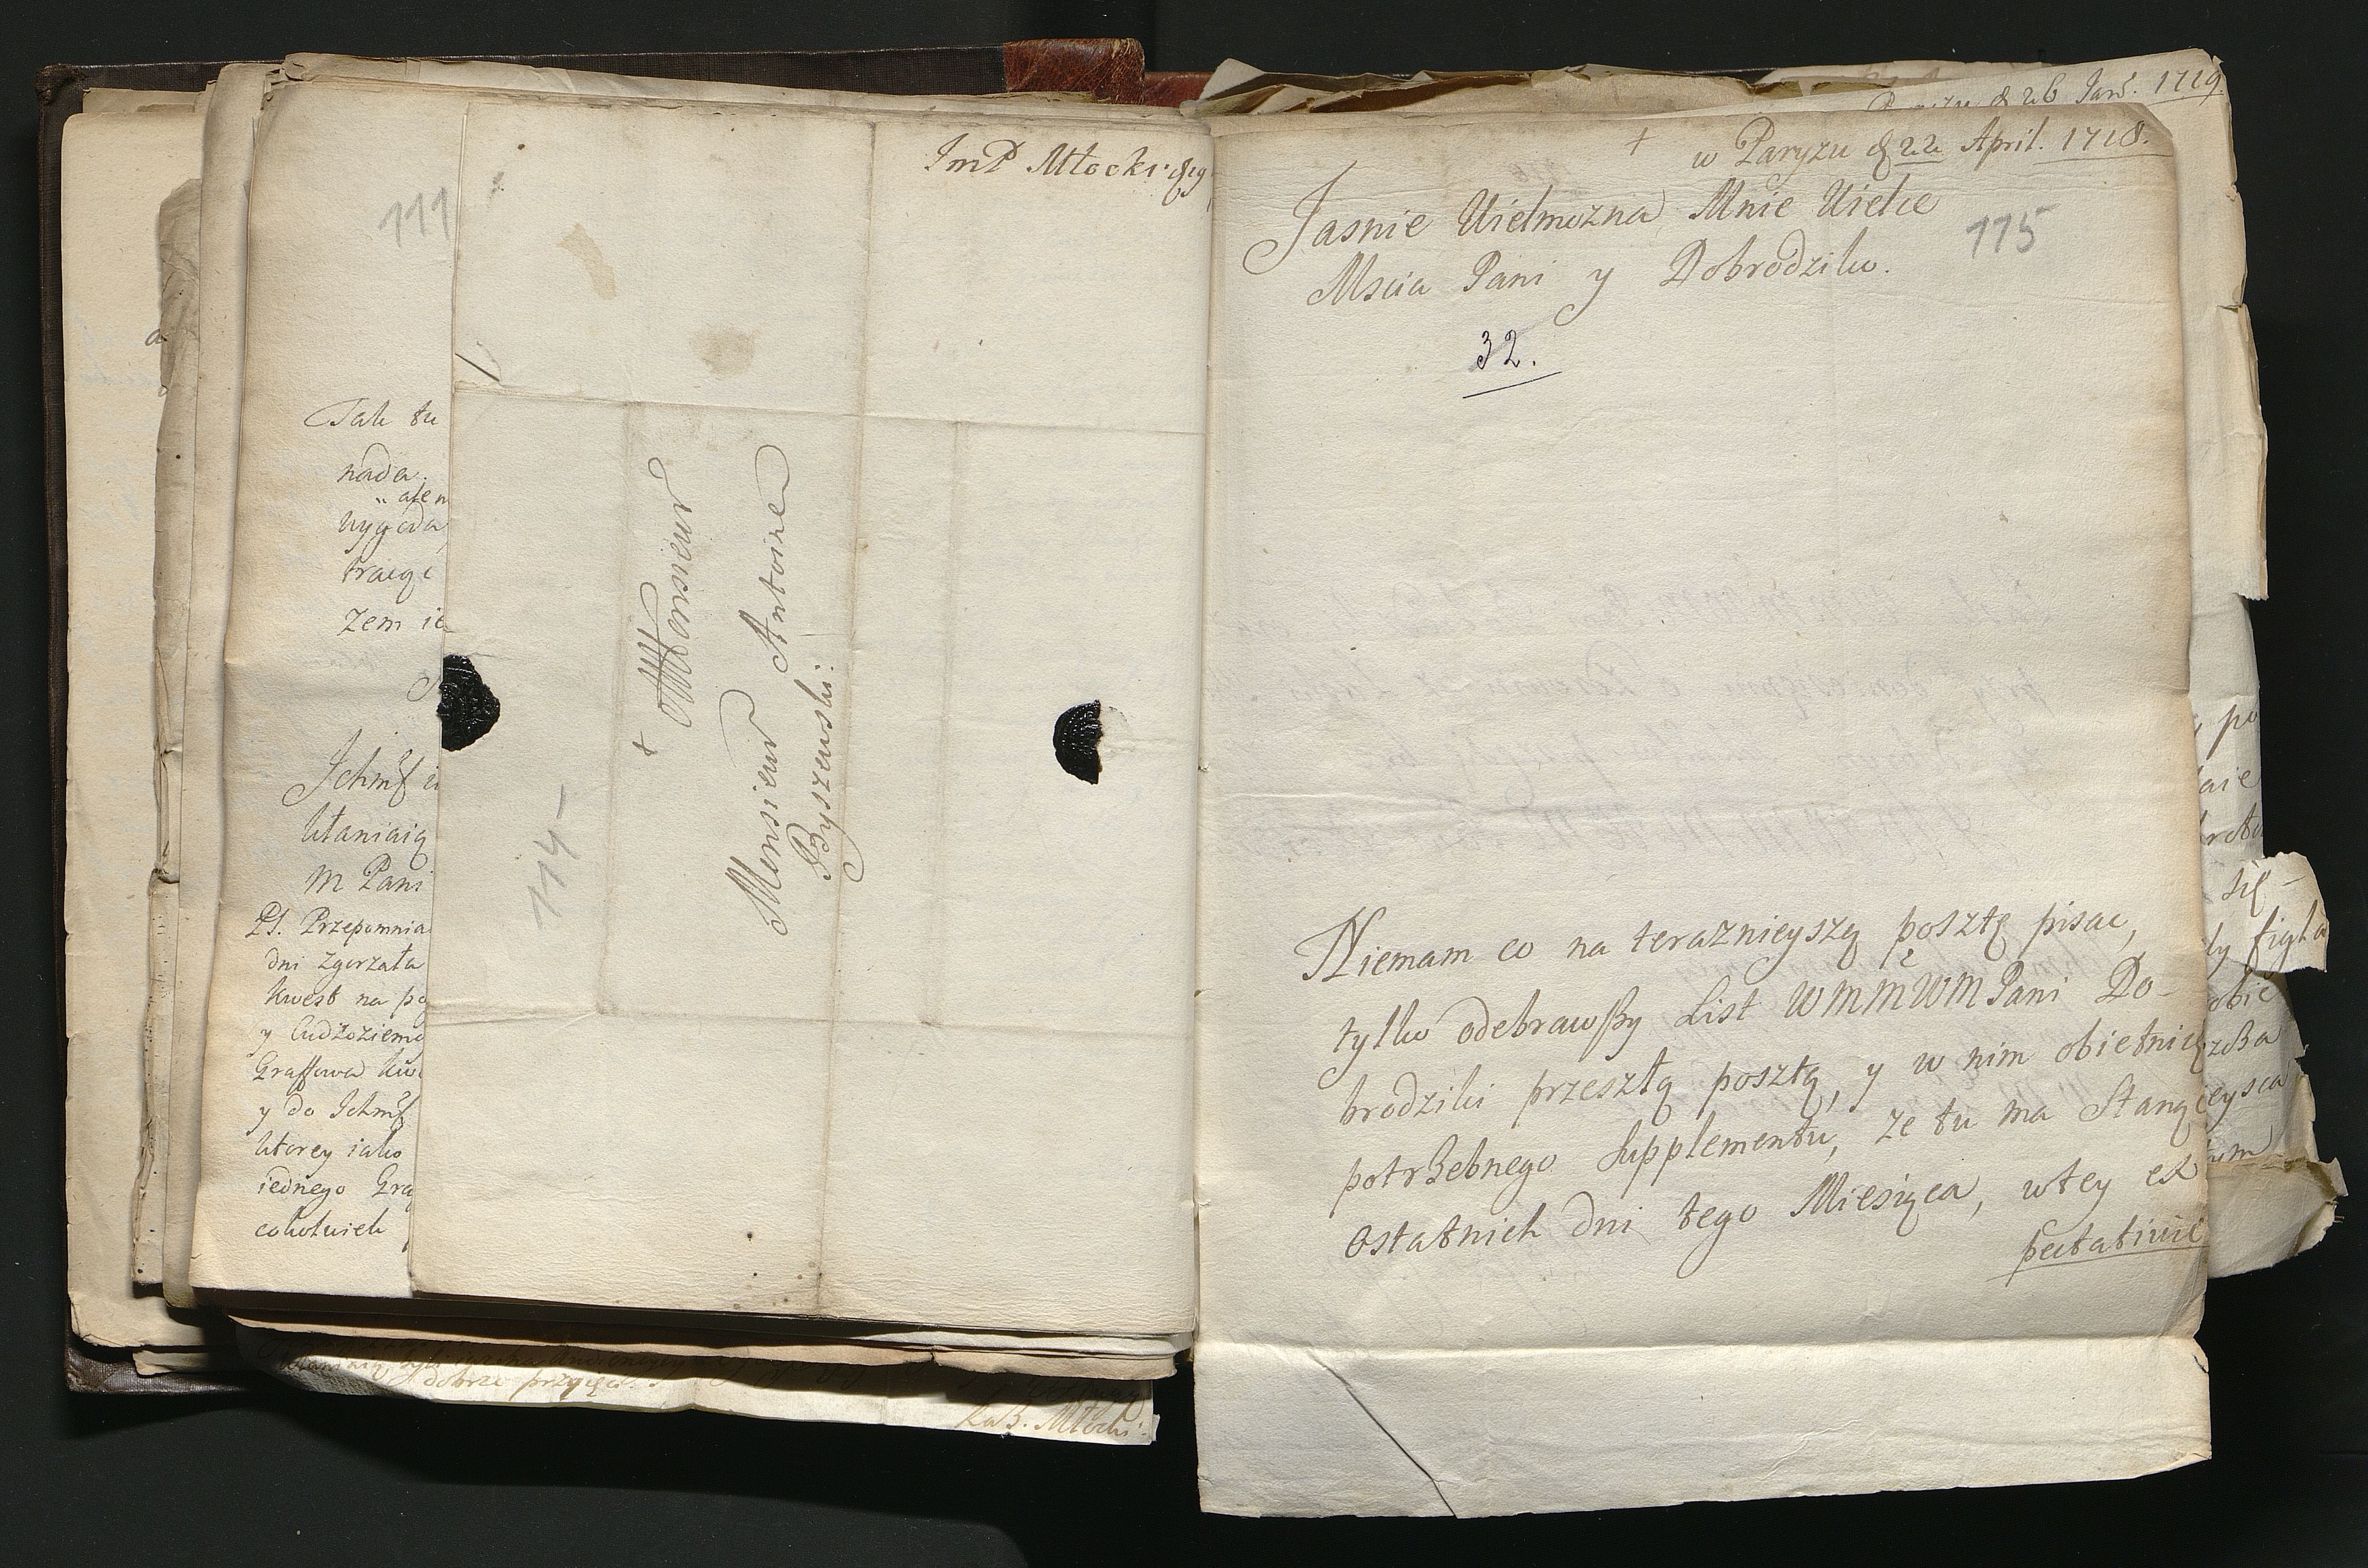 111
Tak tu
nada.
„ ale n
wygoda
traiąc
zem ie
Ichmć i
kłaniaią
m Pani
PS. Przepomnia
dni zgorzała
kwest na po
y Cudzoziemc
Graffowa
y do Ichmć
ktorey iako
iednego Gra
cokolwiek
ImP Młocki
+
Monsieur
Monsieur Antoine
Byszewski:
114
dobrze przyięc
Każ. Młocki
26 Jan. 1719.
+ w Paryzu d 22 April. 1718.
Jasnie Wielmozna Mnie Wielce
Mscia Pani y Dobrodziko.
175
32.
Niemam co na teraznieyszą posztę pisac,
tylko odebrawszy List WMMWMPani Do-
brodziki przeszłą posztą, y w nim obietnicę
potrzebnego supplementu, ze tu ma stanąc
ostatnich dni tego Miesiąca, wtey ex
pectatiwie